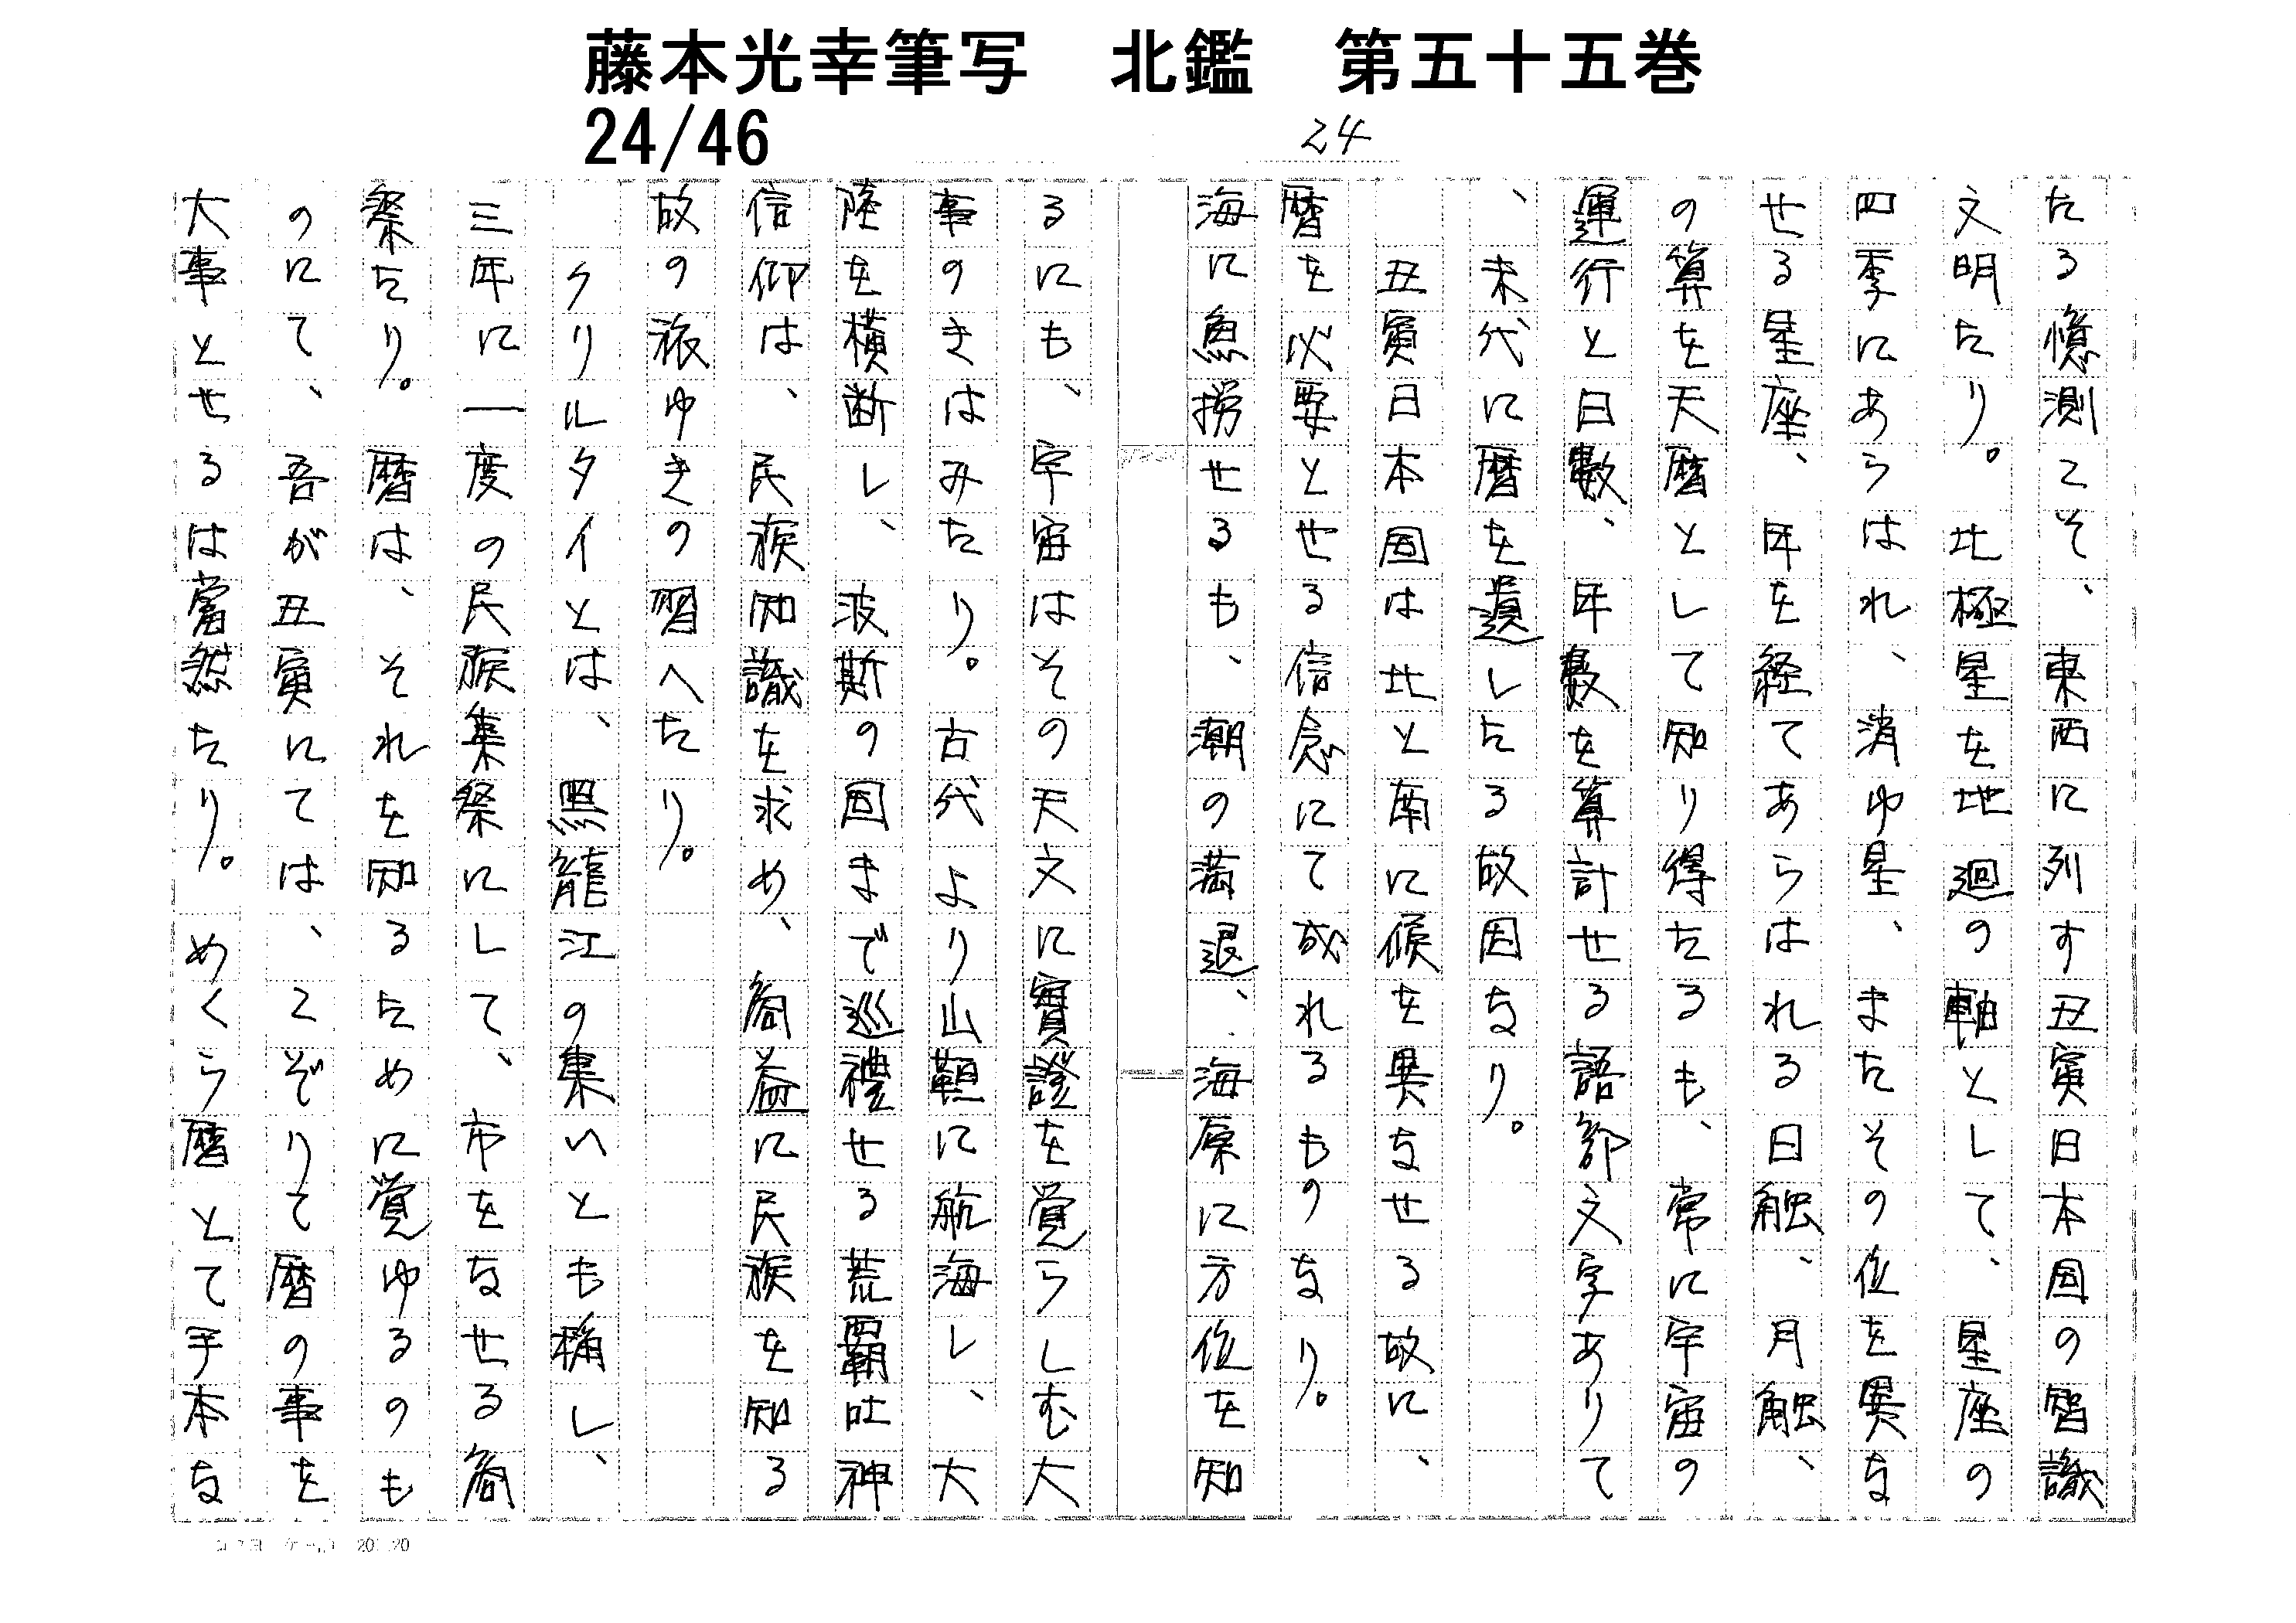 藤本光幸筆写　北鑑　第五十五巻
24/46
24
たる憶測こそ、東西に列す丑寅日本国の智識
文明たり。北極星を地廻の軸として、星座の
四季にあらはれ、消ゆ星、またその位を異な
せる星座、年を経てあらはれる日触、月触、
の算を天暦として知り得たるも、常に宇宙の
運行と日数、年数を算計せる語部文字ありて
、未代に暦を遺したる故因なり。
丑寅日本国は北と南に候を異なせる故に、
暦を以要とせる信念にて成れるものなり。
海に魚撈せるも、潮の満退、海原に方位を知
るにも、宇宙はその天文に實證を覚らしむ大
事のきはみたり。古代より山靼に航海し、大
陸を横断し、波斯の国まで巡禮せる荒覇吐神
信仰は、民族知識を求め、商益に民族を知る
故の旅ゆきの習へたり。
クリルタイとは、黒龍江の集いとも稱し、
三年に一度の民族集祭にして、市をなせる商
祭たり。暦は、それを知るために覚ゆるのも
のにて、吾が丑寅にては、こぞりて暦の事を
大事とせるは當然たり。めくら暦とて手本な